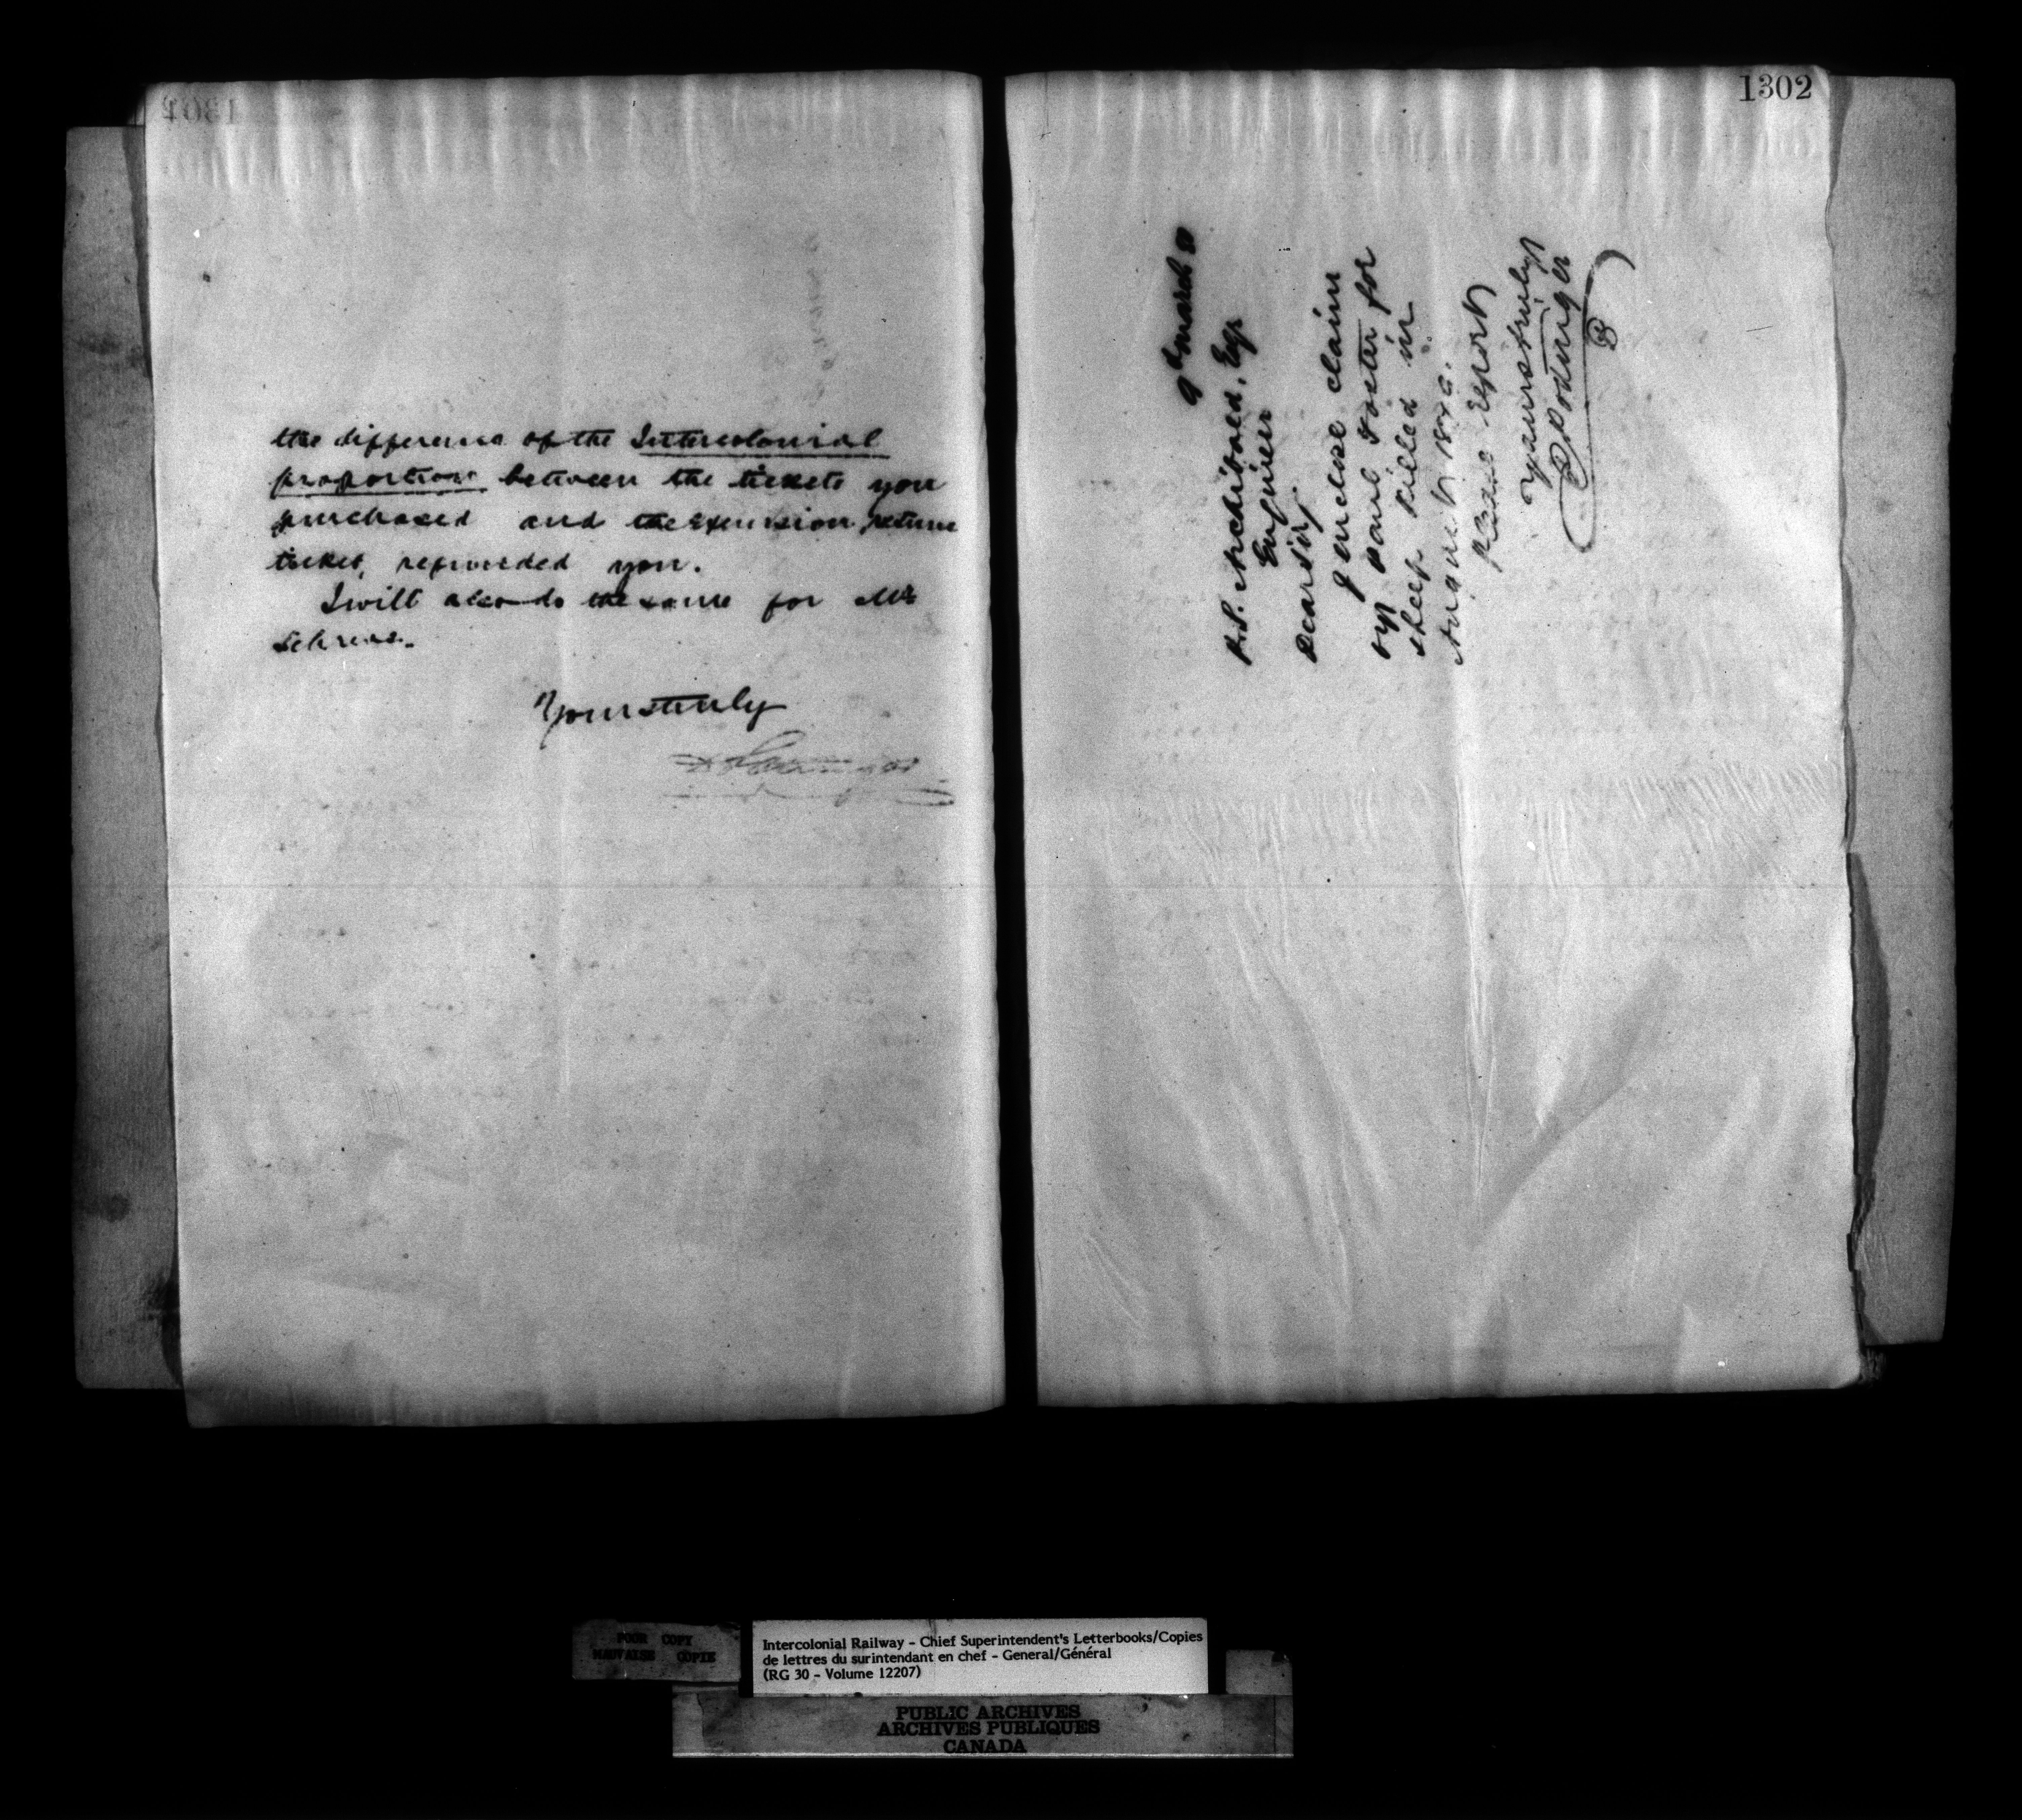 the difference of the Intercolonial
proportion between the tickets you
purchased and the Excursion return
ticket, refunded you.
I will also do the same for Mr
Yours truly
1302
9th March 80
P.S. Archibald, Esqr
Engineer
Dear Sir,
I enclose claim
of Paul Foster for
sheep killed in
August 1879.
Please report
Yours truly
D Pottinger
POOR COPY
MAUVAISE COPIE
Intercolonial Railway - Chief Superintendent's Letterbooks/Copies
de lettres du surintendant en chef - General/Général
(RG 30 - Volume 12207)
PUBLIC ARCHIVES
ARCHIVES PUBLIQUES
CANADA